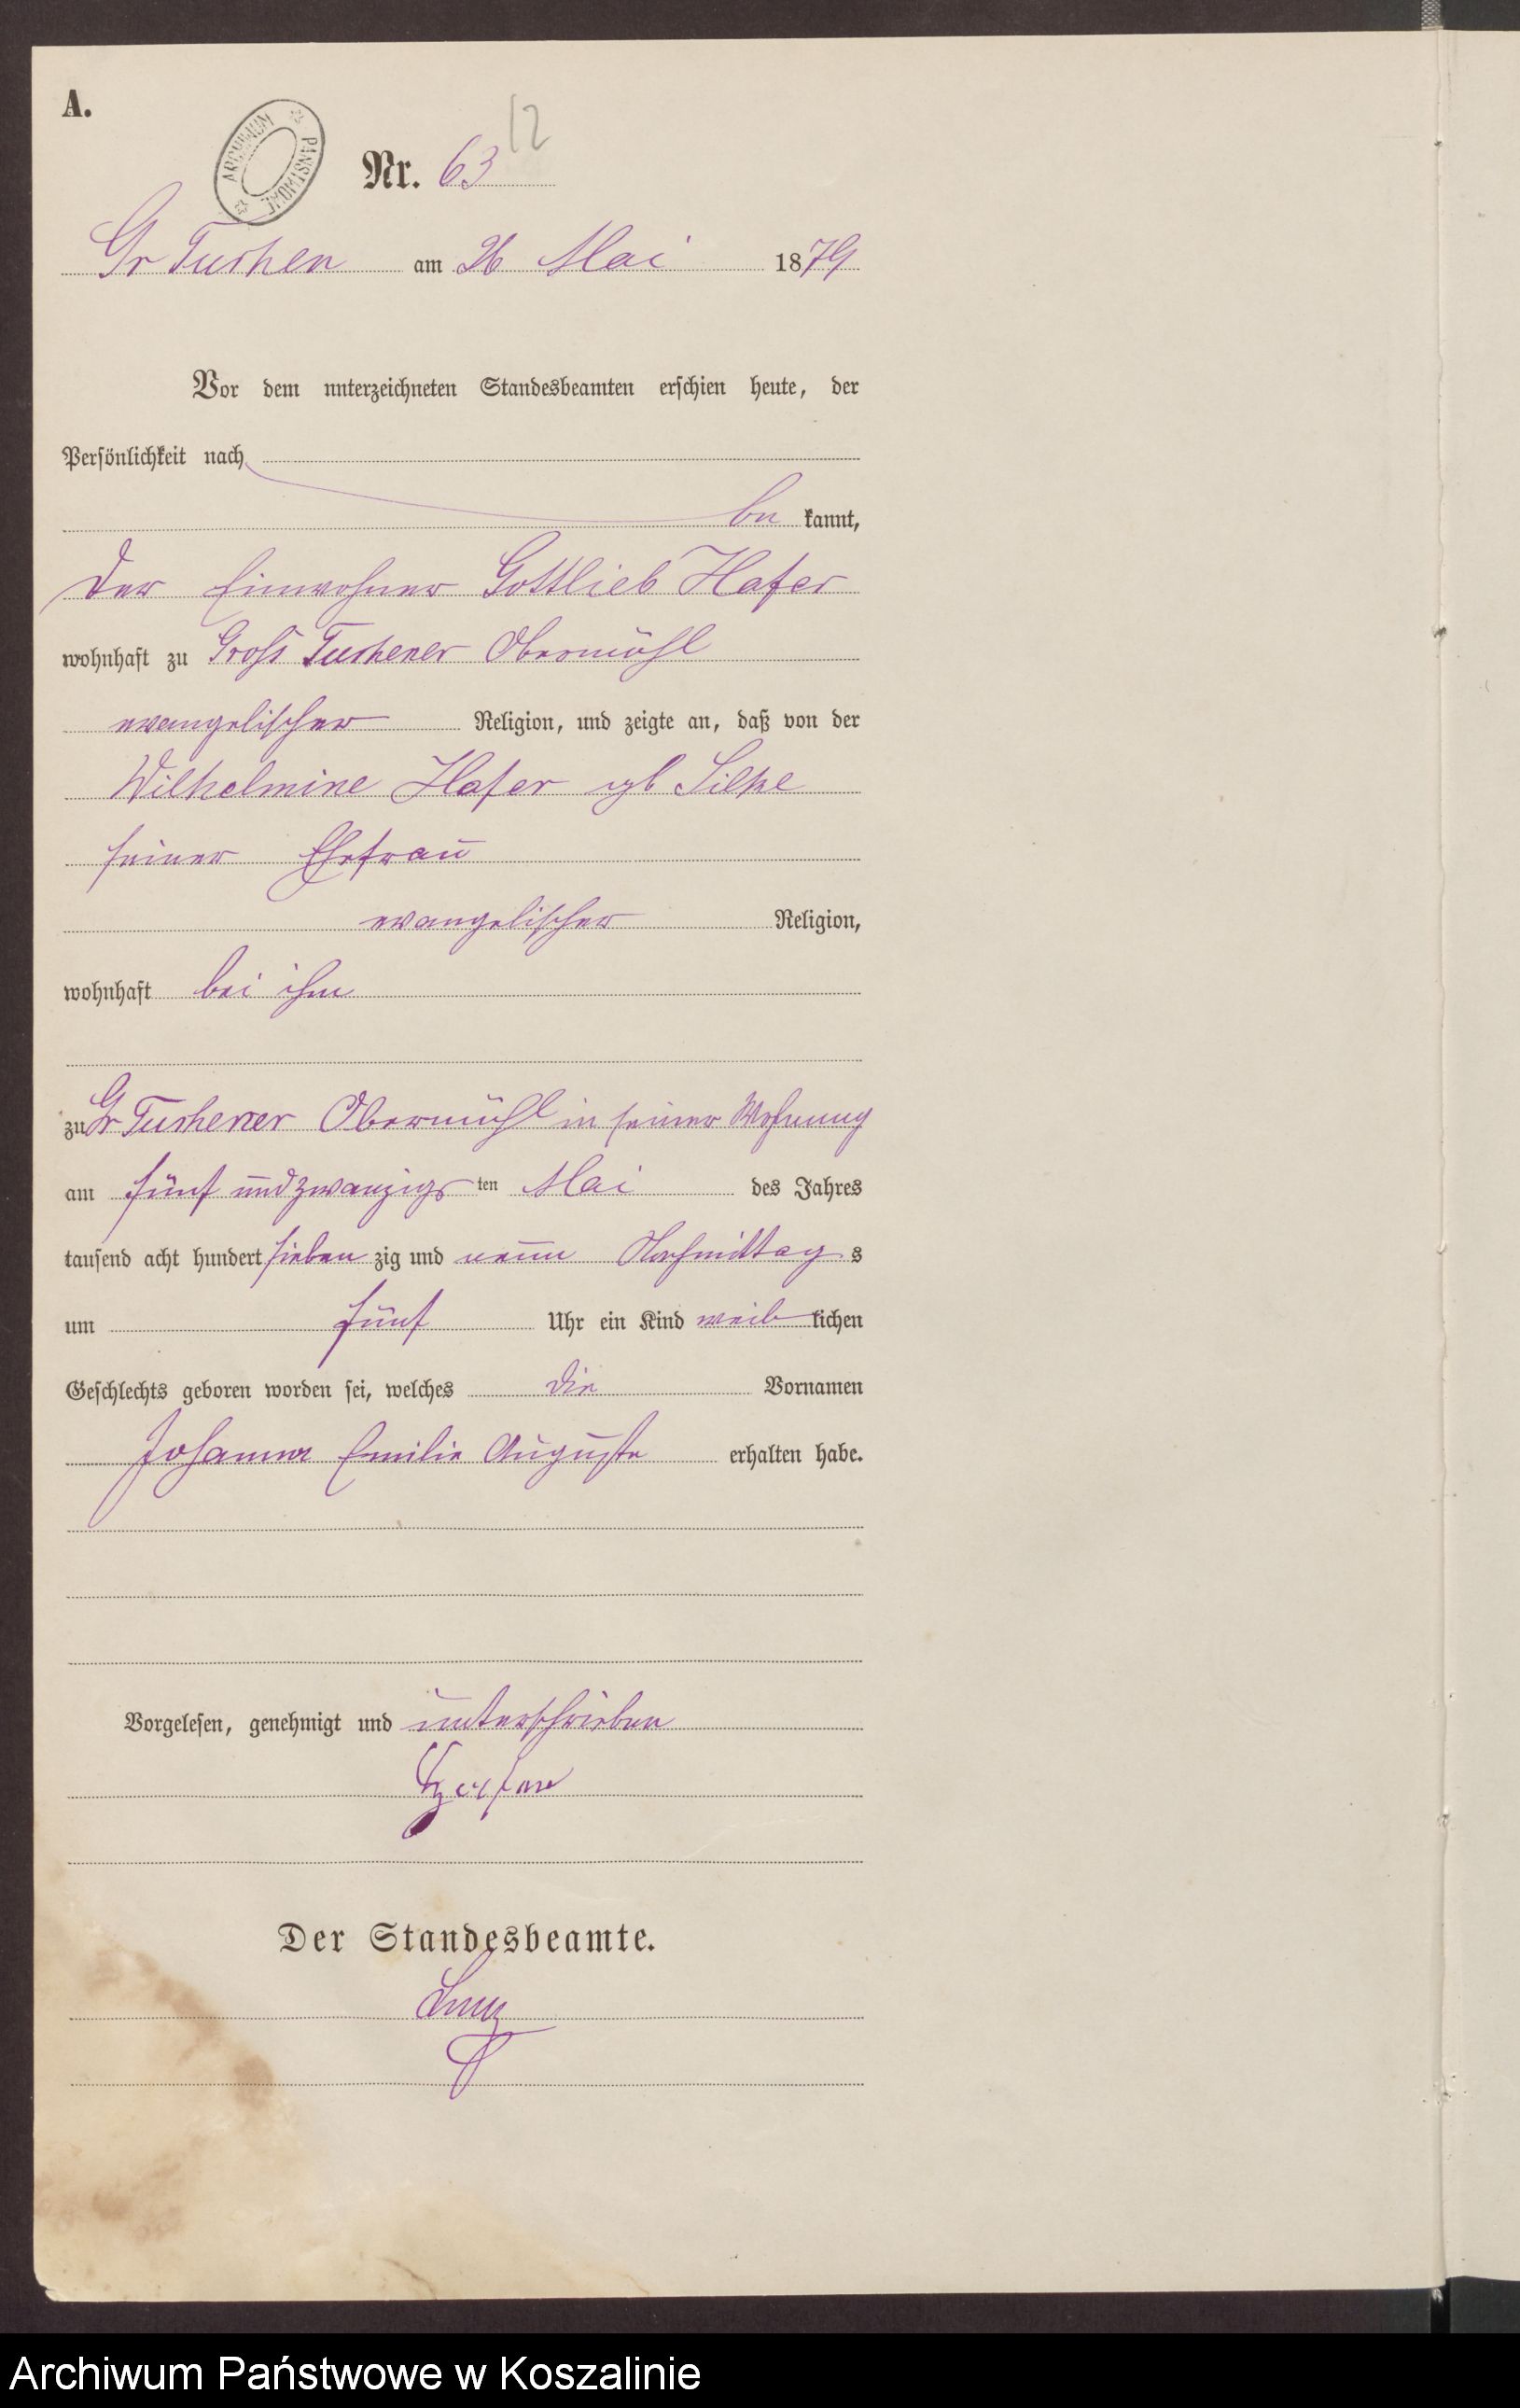 A.
12
ARCHIWUM PAŃSTWOWE
Nr. 63
Gr Tuchen am 26 Mai 1879
Vor dem unterzeichneten Standesbeamten erschien heute, der
Persönlichkeit nach
be kannt,
der Einwohner Gottlieb Hafer
wohnhaft zu Gross Tuchener Obermühl
evangelischer Religion, und zeigte an, daß von der
Wilhelmine Hafer gb Silke
seiner Ehefrau
evangelischer Religion,
wohnhaft bei ihm
zu Gr Tuchener Obermühl in seiner Wohnung
am fünf und zwanzigs ten Mai des Jahres
tausend acht hundert sieben zig und neun Nachmittag s
um fünf Uhr ein Kind weib lichen
Geschlechts geboren worden sei, welches die Vornamen
Johanna Emilie Auguste erhalten habe.
Vorgelesen, genehmigt und unterschrieben
Der Standesbeamte.
Archiwum Państwowe w Koszalinie